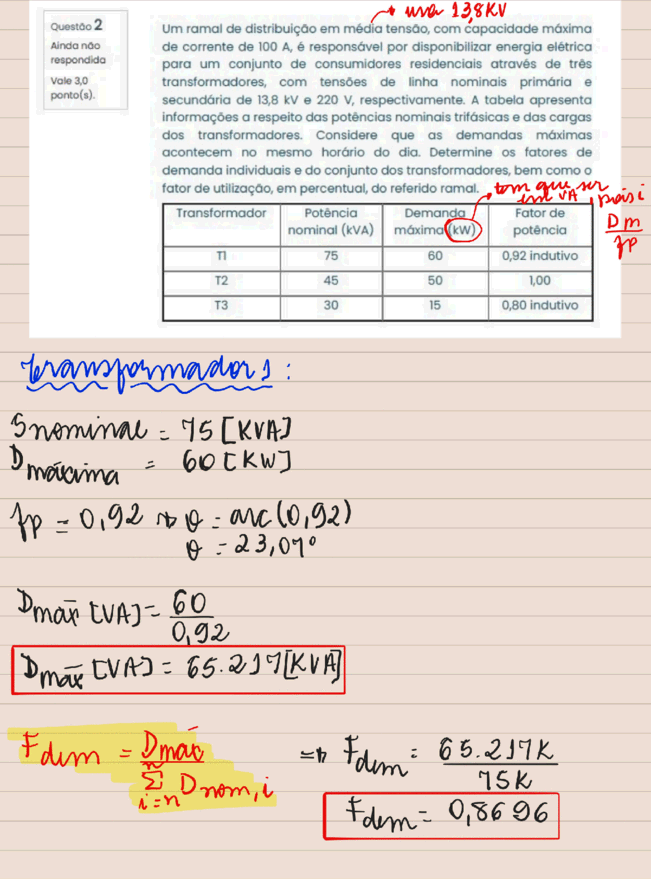 usa 13,8KV
Questão 2
Ainda não
respondida
Vale 3,0
ponto(s).
Um ramal de distribuição em média tensão, com capacidade máxima
de corrente de 100 A, é responsável por disponibilizar energia elétrica
para um conjunto de consumidores residenciais através de três
transformadores, com tensões de linha nominais primária e
secundária de 13,8 kV e 220 V, respectivamente. A tabela apresenta
informações a respeito das potências nominais trifásicas e das cargas
dos transformadores. Considere que as demandas máximas
acontecem no mesmo horário do dia. Determine os fatores de
demanda individuais e do conjunto dos transformadores, bem como o
fator de utilização, em percentual, do referido ramal.
tem que ser
em VA, pois:
Dm
fp
Transformador Potência nominal (kVA) Demanda máxima (kW) Fator de potência
T1 75 60 0,92 indutivo
T2 45 50 1,00
T3 30 15 0,80 indutivo
transformador 1:
Snominal = 75 [KVA]
Dmáxima = 60 [KW]
fp = 0,92 → θ = arc(0,92)
θ = 23,07°
Dmáx [VA] = 60
0,92
Dmáx [VA] = 65.217[KVA]
Fdem = Dmáx
n
∑ Dnom,i
i=n
⇒ Fdem = 65.217K
75K
Fdem = 0,8696